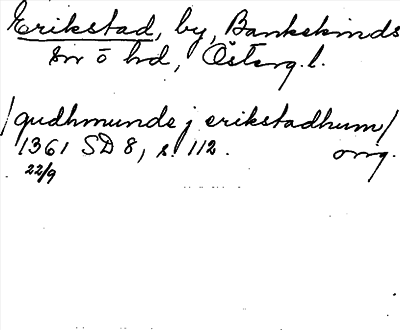 Erikstad, by, Bankekinds
sn o hd, Österg.l.
/gudhmunde j erikstadhum/
1361 SD 8, s. 112. orig.
22/9